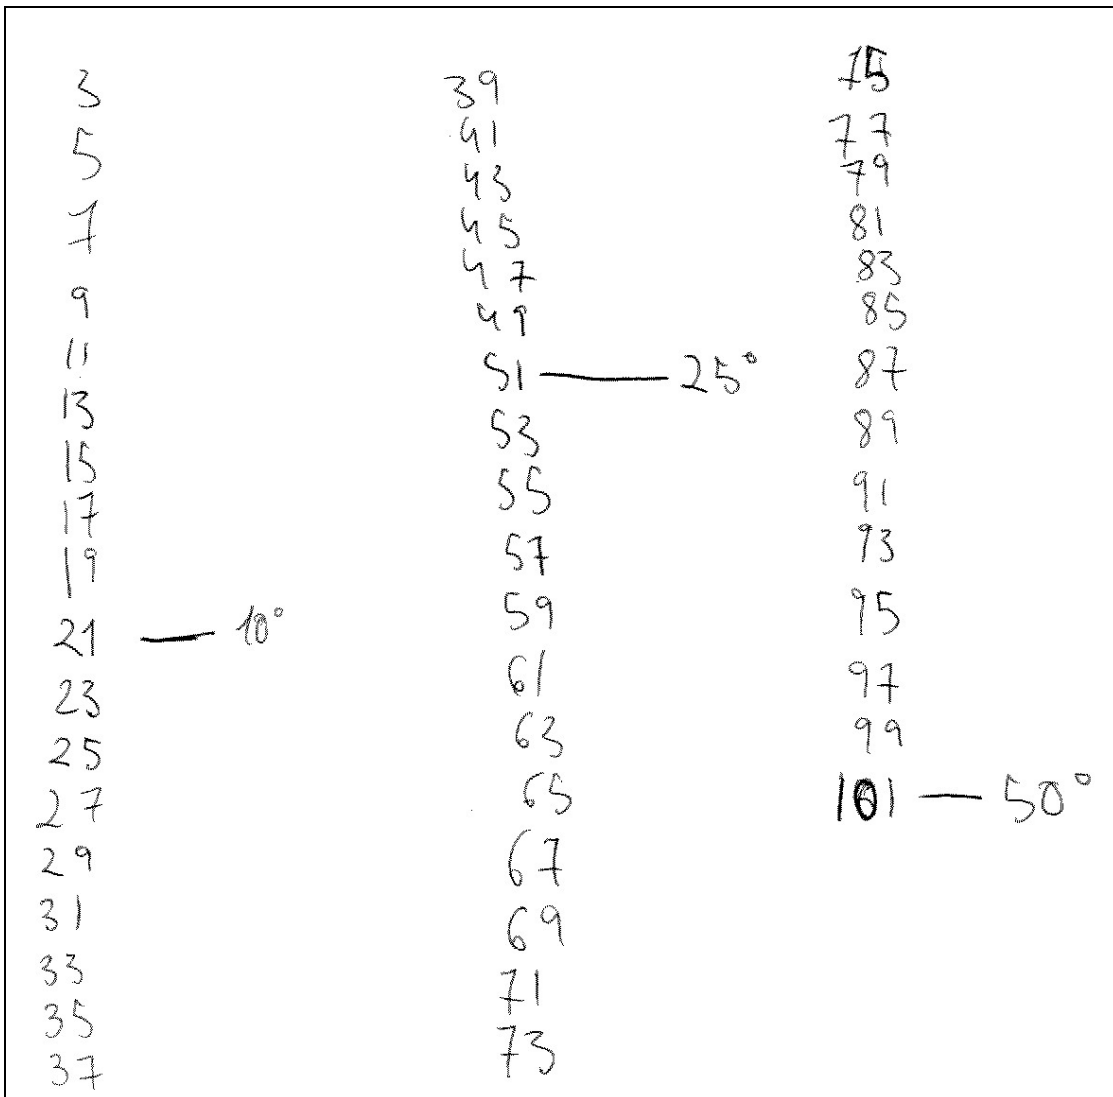 3
5
7
9
11
13
15
17
19
21 — 10°
23
25
27
29
31
33
35
37
39
41
43
45
47
49
51 — 25°
53
55
57
59
61
63
65
67
69
71
73
75
77
79
81
83
85
87
89
91
93
95
97
99
101 — 50°